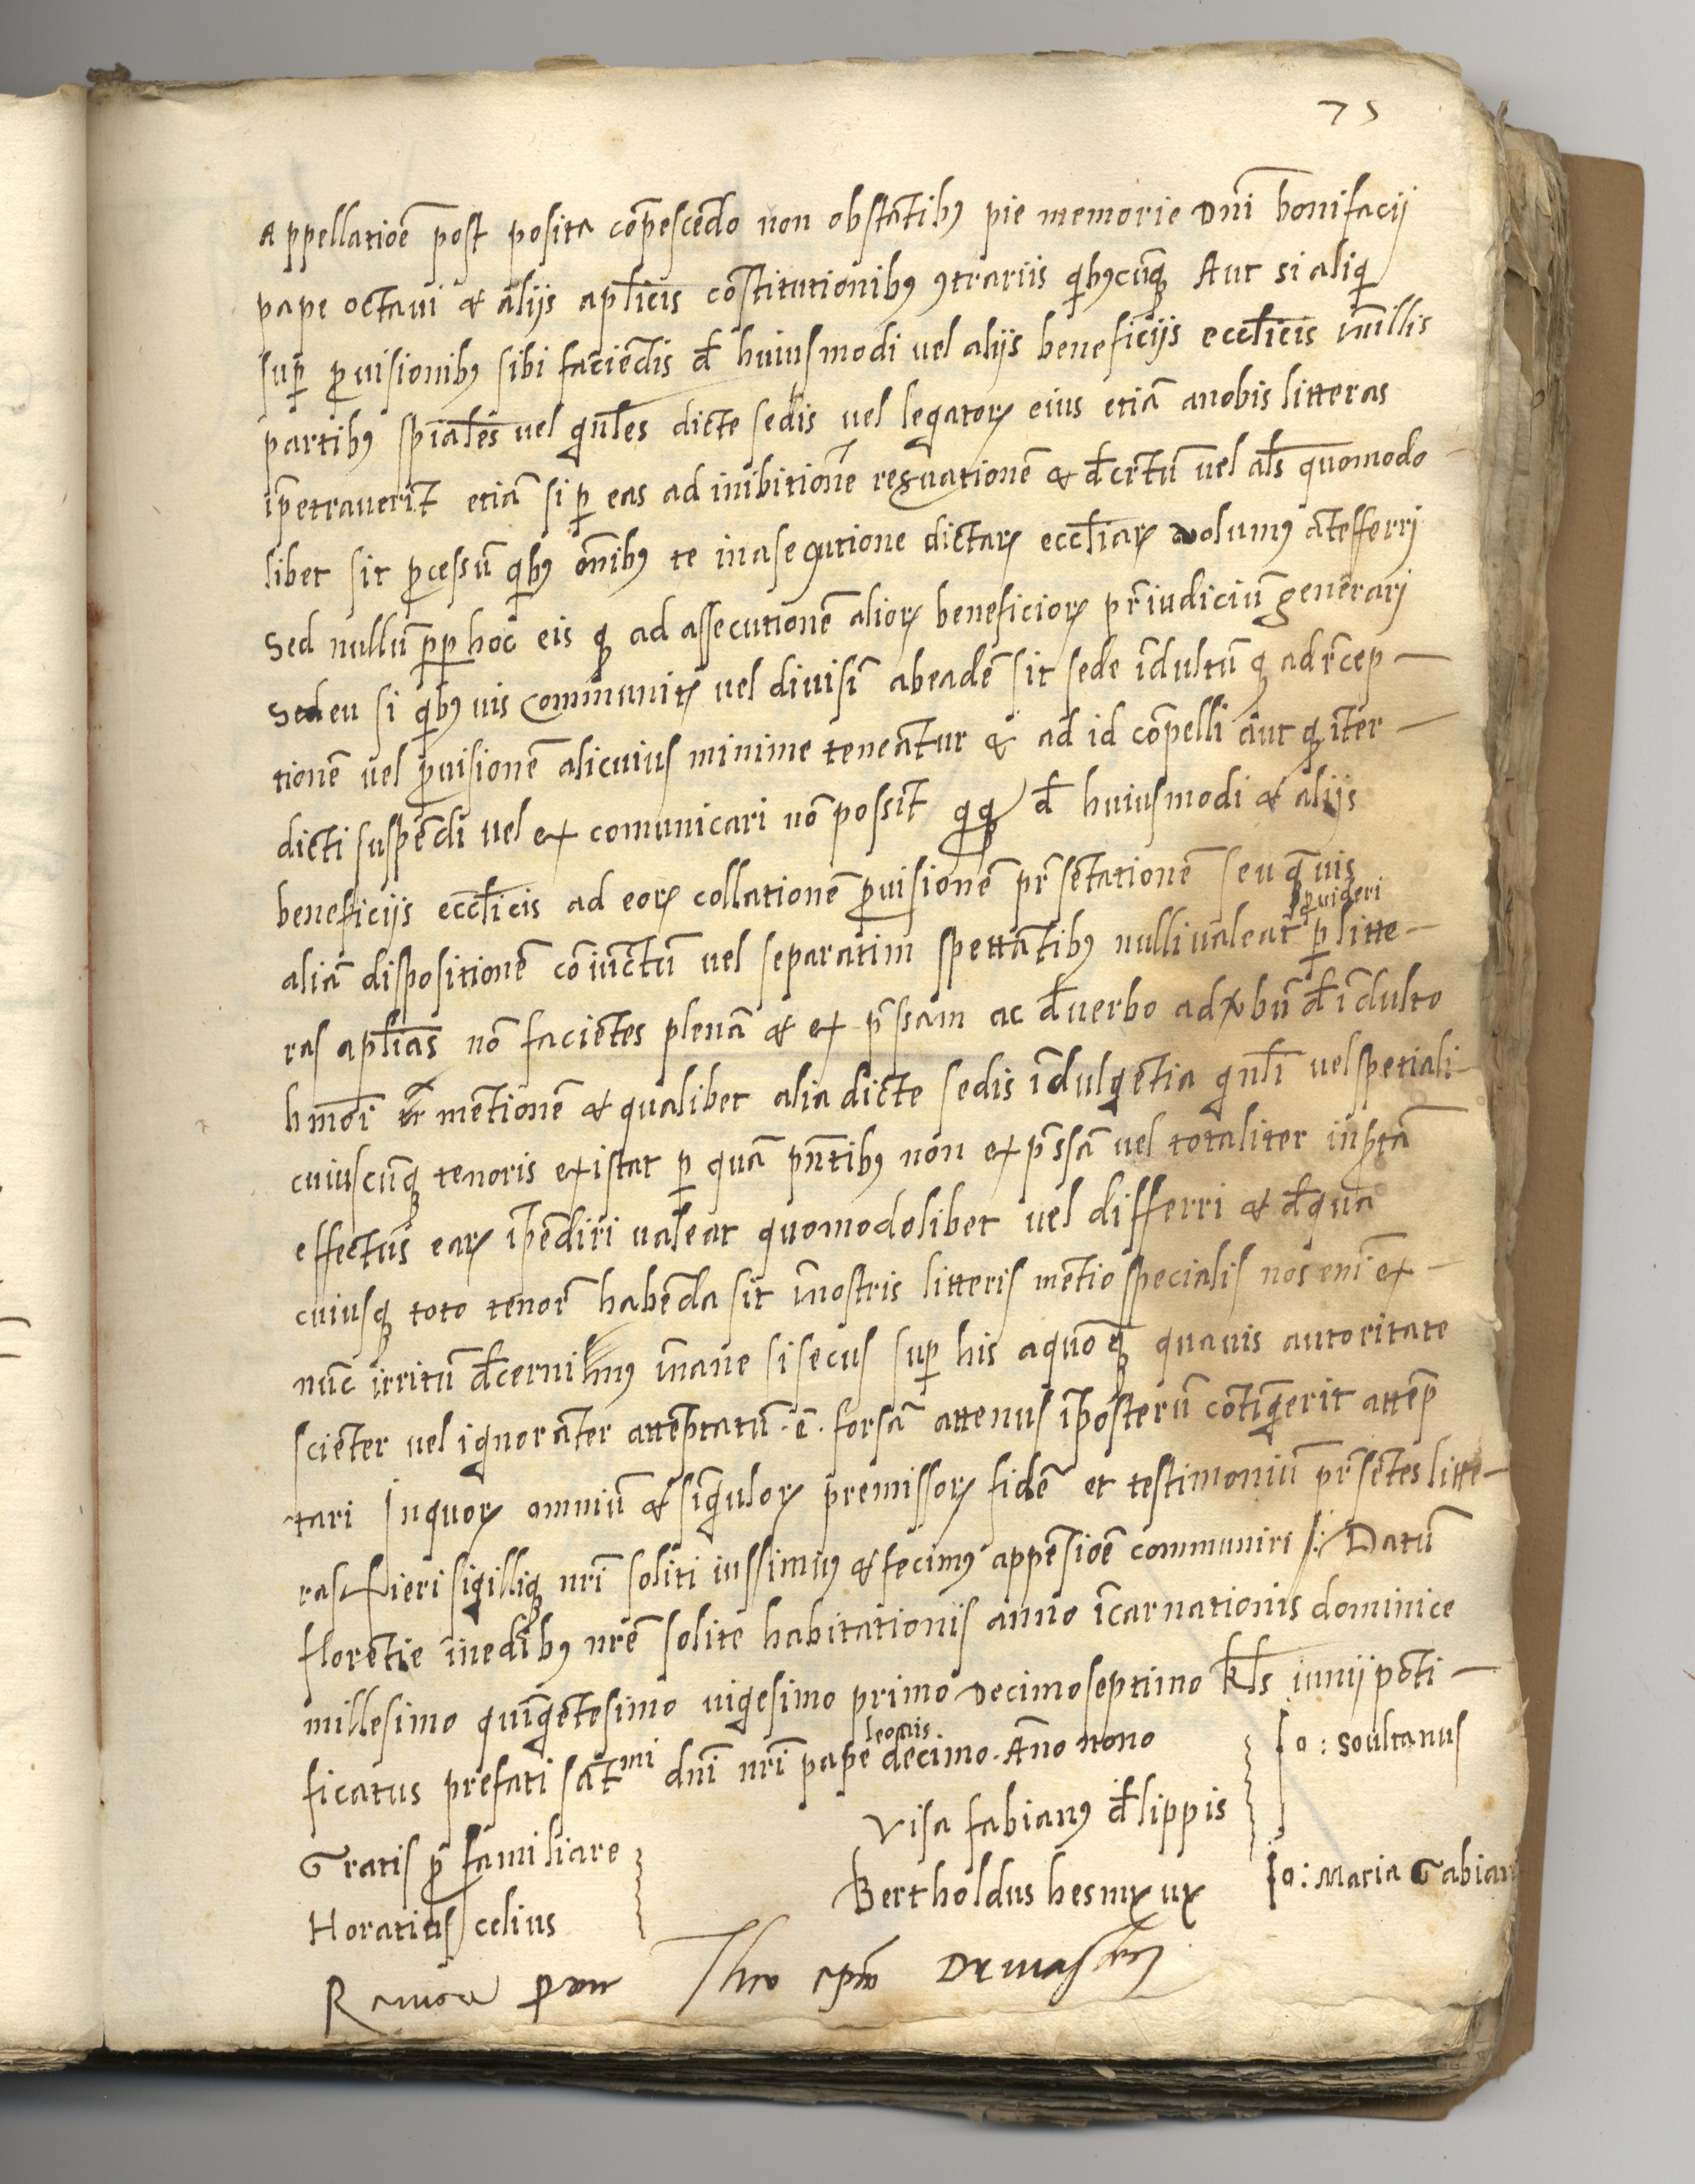 75
appellatiōē post posita cōpescēdo non obstātibꝰ pie memorie Dn̄i bonifacij
pape octaui & alijs apl̄icis cōstitutionibꝰ ꝯtrariis qbꝰcūqꝫ Aut si aliq
suꝑ ꝓuisionibꝰ sibi faciēdis đ huiusmodi vel alijs beneficijs eccl̄icis īnillis
partibꝰ sp̄iales vel gn̄les dicte sedis vel legatoꝝ eius etiā anobis litteras
īpetrauerīt etiā si ꝑ eas ad inibitionē reꝫuationē & đcr̄tū vel als̄ quomodo
libet sit ꝓcessū qbꝰ om̄ibꝰ te inasecutione dictaꝝ eccl̄iaꝝ volumꝰ āteferri
Sed nullū ꝓpꝑ hoc eis qꝫ ad assecutionē alioꝝ beneficioꝝ pr̄iudiciū generari
Seu si qbꝰuis communitꝫ vel diuisī abeadē sit sede īdultū qꝫ adr̄cep
tionē vel ꝓuisionē alicuius minime teneātur & ad id cōpelli aut qꝫ īter
dicti suspēdi vel excomunicari nō possīt qꝫ đ huiusmodi & alijs
beneficijs eccl̄icis ad eoꝝ collationē ꝓuisionē pr̄sētationē seu quāuis
aliā dispositionē cōiūctū vel separatim spettātibꝰ nulli valeat ꝓuideri ꝑ litte
ras apl̄ias nō faciētes plenā & expr̄ssam ac đverbo ad vbū đ īdulto
hm̄oi mētionē & qualibet alia dicte sedis īdulgētia gn̄li vel spetiali
cuiuscūqꝫ tenoris existat ꝑ quā pn̄tibꝰ non expr̄ssā vel totaliter insꝑtā
effectus eaꝝ īpēdiri valeat quomodolibet vel differri & đ qua
cuiusqꝫ toto tenor̄ habēda sit īnostris litteris mētio specialis nos eni ex
nūc irritū đcernimꝰ īnane si secus suꝑ his aquoqꝫ quauis autoritate
sciēter vel ignorāter attēptatū .ē. forsā attenus īposterū cōtigerit attēp
tari Inquoꝝ omniū & sīguloꝝ premissoꝝ fidē et testimoniū pr̄sētes litte
ras fieri sigilliqꝫ nr̄i soliti iussimus & fecimꝰ appēsiōē communiri /: Datū
florētie inedibꝰ nrē solite habitationis anno īcarnationis dominice
millesimo quīgētesimo vigesimo primo Decimoseptimo kls̄ iunij pōti
ficatus prefati sāt mi dn̄i nr̄i pape leonis decimo. Āno nono
Io: Soultanus
Gratis ꝓ familiare
Visa fabianꝰ đ lippis
Horatius celius
Bertholdus
Io: Maria Gabian